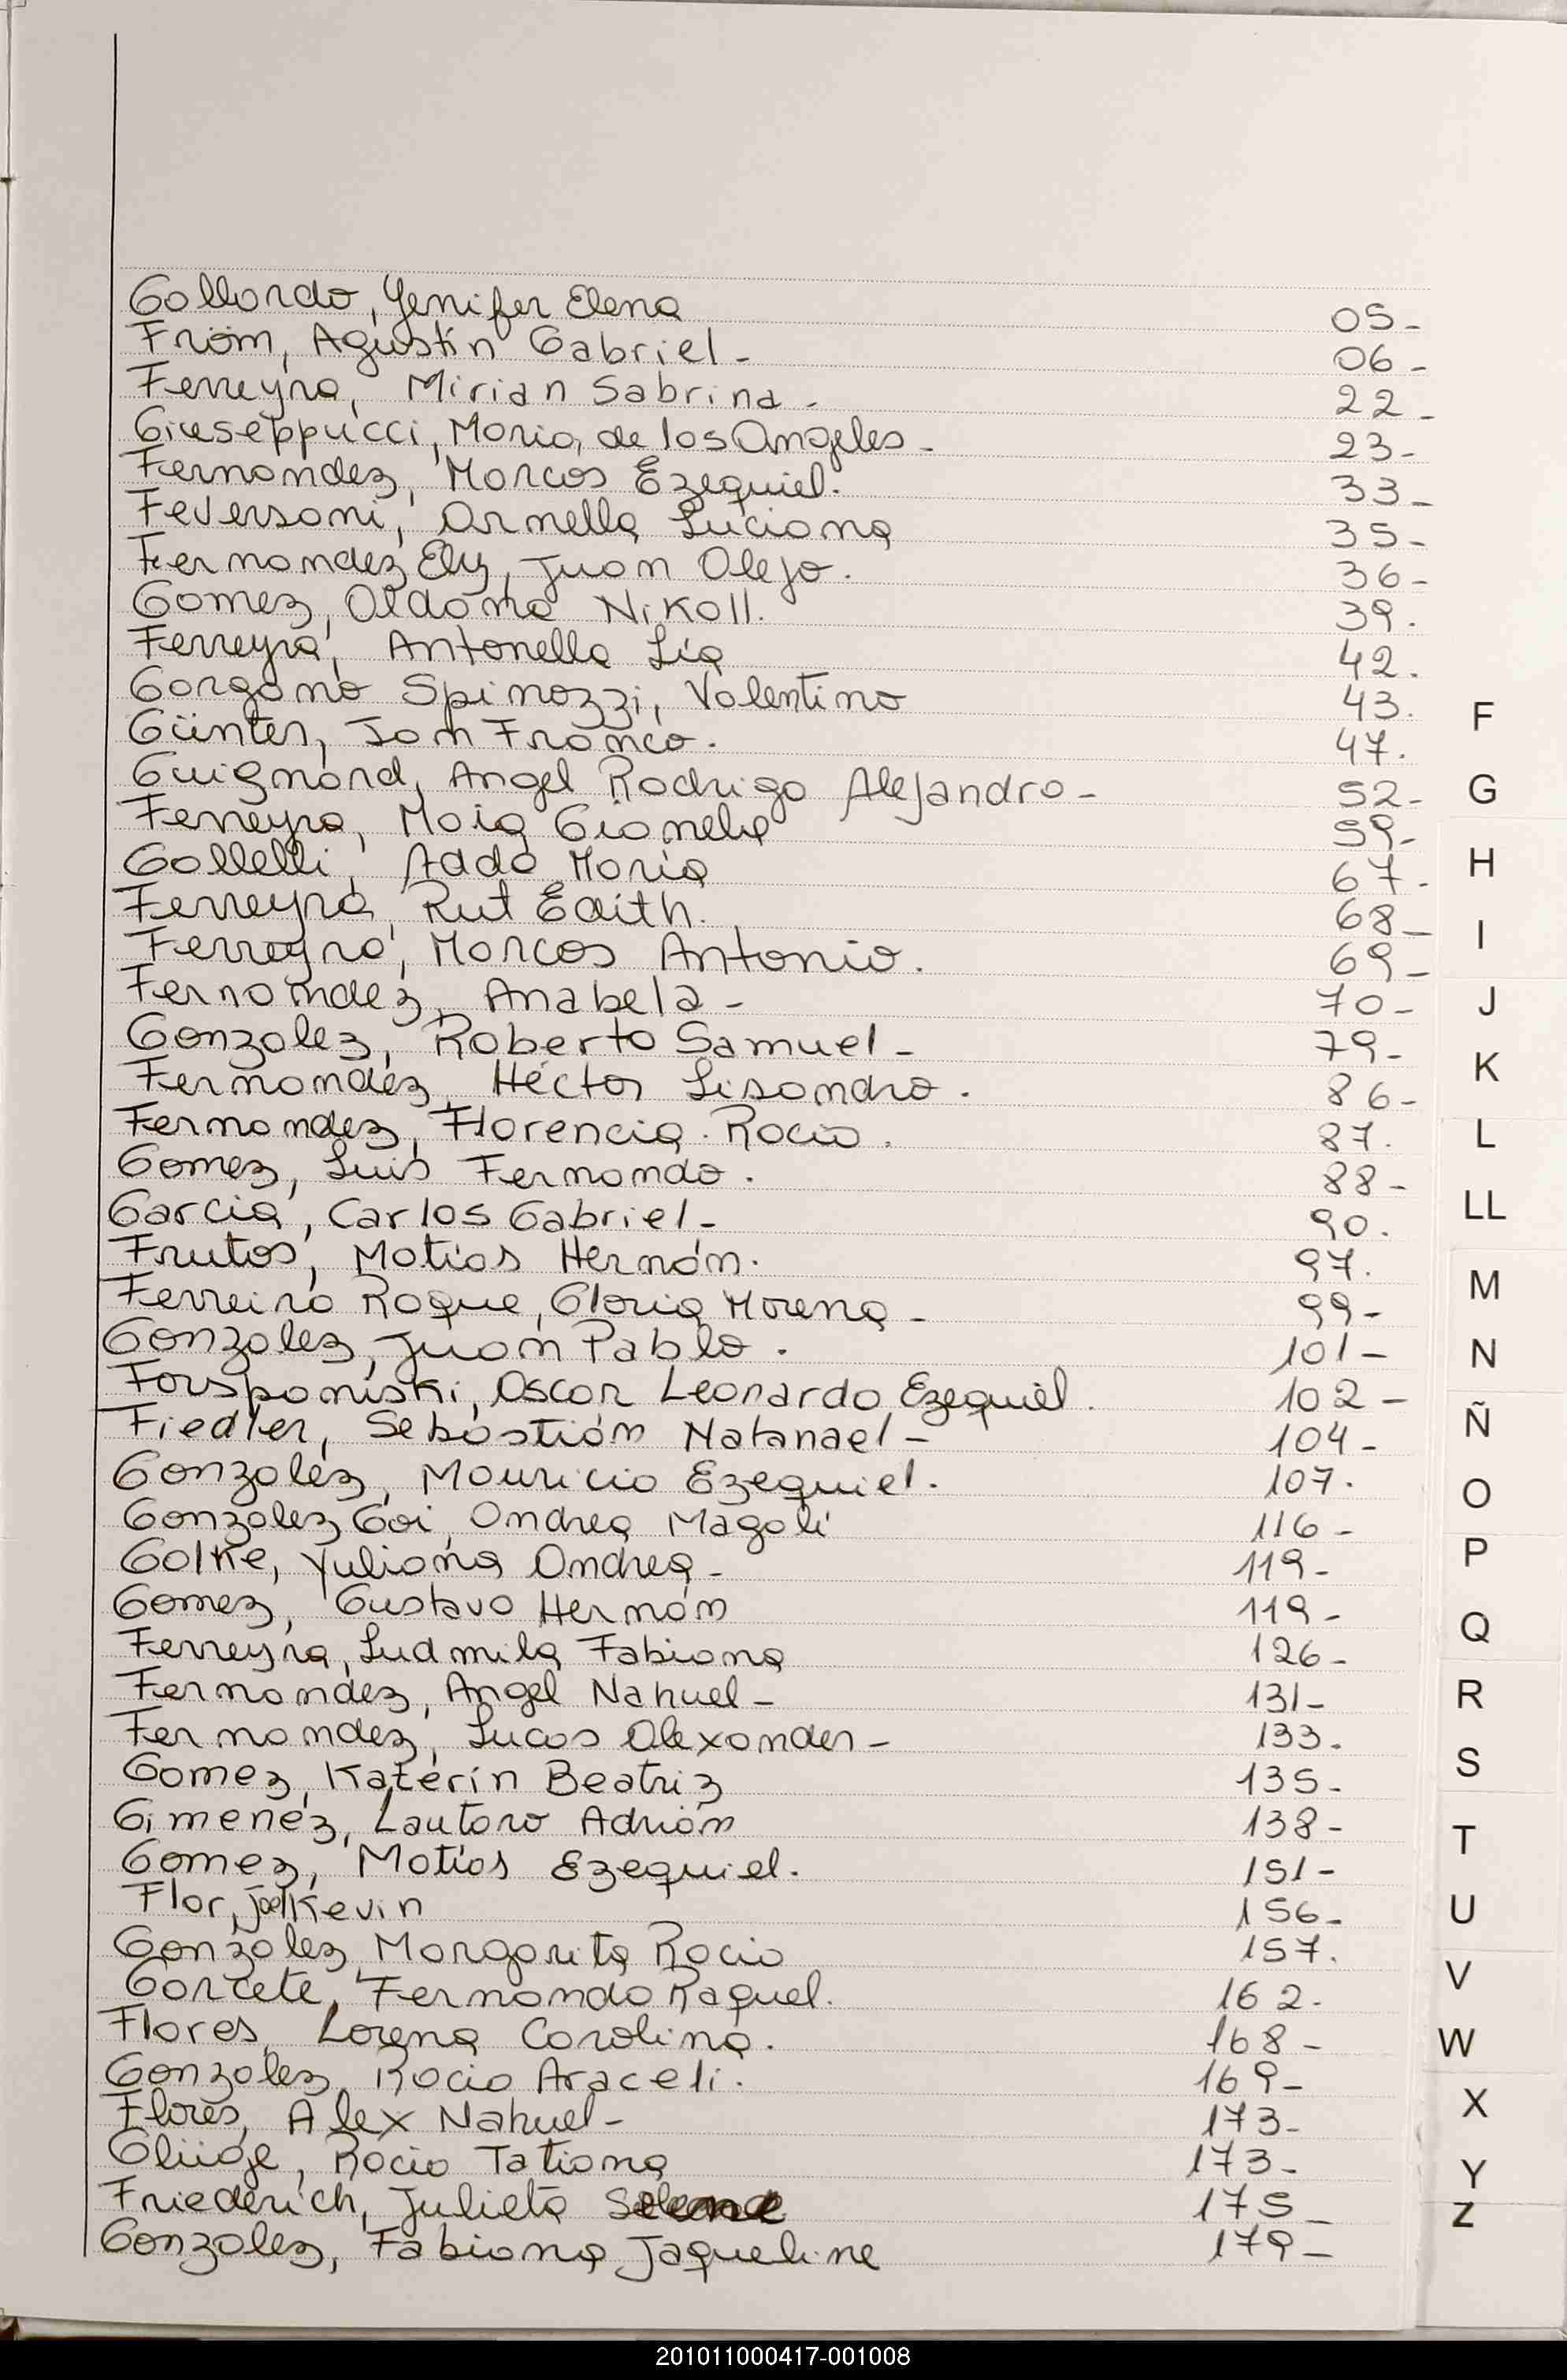 Gallardo, Yenifer Elena 05-
From, Agustín Gabriel - 06-
Ferreyra, Mirian Sabrina - 22-
Giuseppucci, Maria de los Angeles - 23-
Fernandez, Marcos Ezequiel. 33-
Feversani, Ornella Luciana 35-
Fernandez Ely, Juan Alejo. 36-
Gomez, Aldana Nikoll. 39.
Ferreyra, Antonella Lía 42.
Gorgono Spinozzi, Valentino 43.
Günter, Jan Franco. 47.
Guignard, Angel Rodrigo Alejandro - 52-
Ferreyra, Maia Gianella 59-
Galletti, Adda Maria 67-
Ferreyra, Rut Edith. 68-
Ferreyra, Marcos Antonio. 69-
Fernandez, Anabela - 70-
Gonzalez, Roberto Samuel - 79-
Fernandez, Héctor Lisandro. 86-
Fernandez, Florencia Rocio. 87.
Gomez, Luis Fernando. 88-
Garcia, Carlos Gabriel - 90.
Frutos, Matías Hernán. 97.
Ferreira Roque, Gloria Morena - 99-
Gonzalez, Juan Pablo. 101-
Oscar Leonardo Ezequiel. 102-
Fiedler, Sebastián Natanael - 104-
Gonzalez, Mauricio Ezequiel. 107.
Gonzalez Goi, Andrea Magali 116-
Golke, Yuliana Andrea - 119-
Gomez, Gustavo Hernán 119-
Ferreyra, Ludmila Fabiana 126-
Fernandez, Angel Nahuel - 131-
Fernandez, Lucas Alexander - 133.
Gomez, Katerin Beatriz 135-
Gimenez, Lautaro Adrián 138-
Gomez, Matías Ezequiel. 151-
Flor, Joel Kevin 156-
Gonzalez, Margarita Rocio 157.
Garcete, Fernando Raquel. 162-
Flores, Lorena Carolina. 168-
Gonzalez, Rocio Araceli. 169-
Flores, Alex Nahuel - 173-
Rocio Tatiana 173-
Friederich, Julieta 175-
Gonzalez, Fabiana Jaqueline 179-
F
G
H
I
J
K
L
LL
M
N
Ñ
O
P
Q
R
S
T
U
V
W
X
Y
Z
201011000417-001008